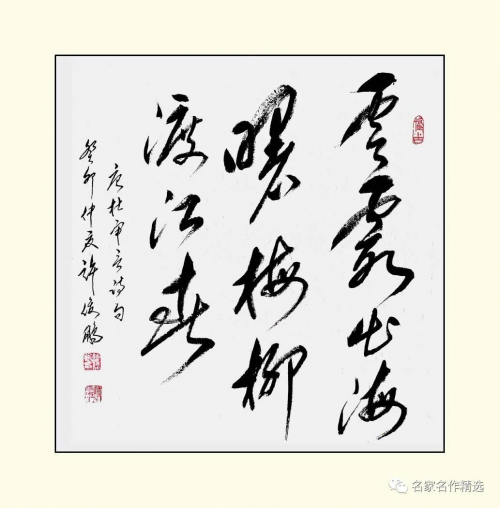 雲霞出海
曙梅柳
渡江春
唐杜审言诗句
癸卯仲夏許俊鹏
名家名作精选